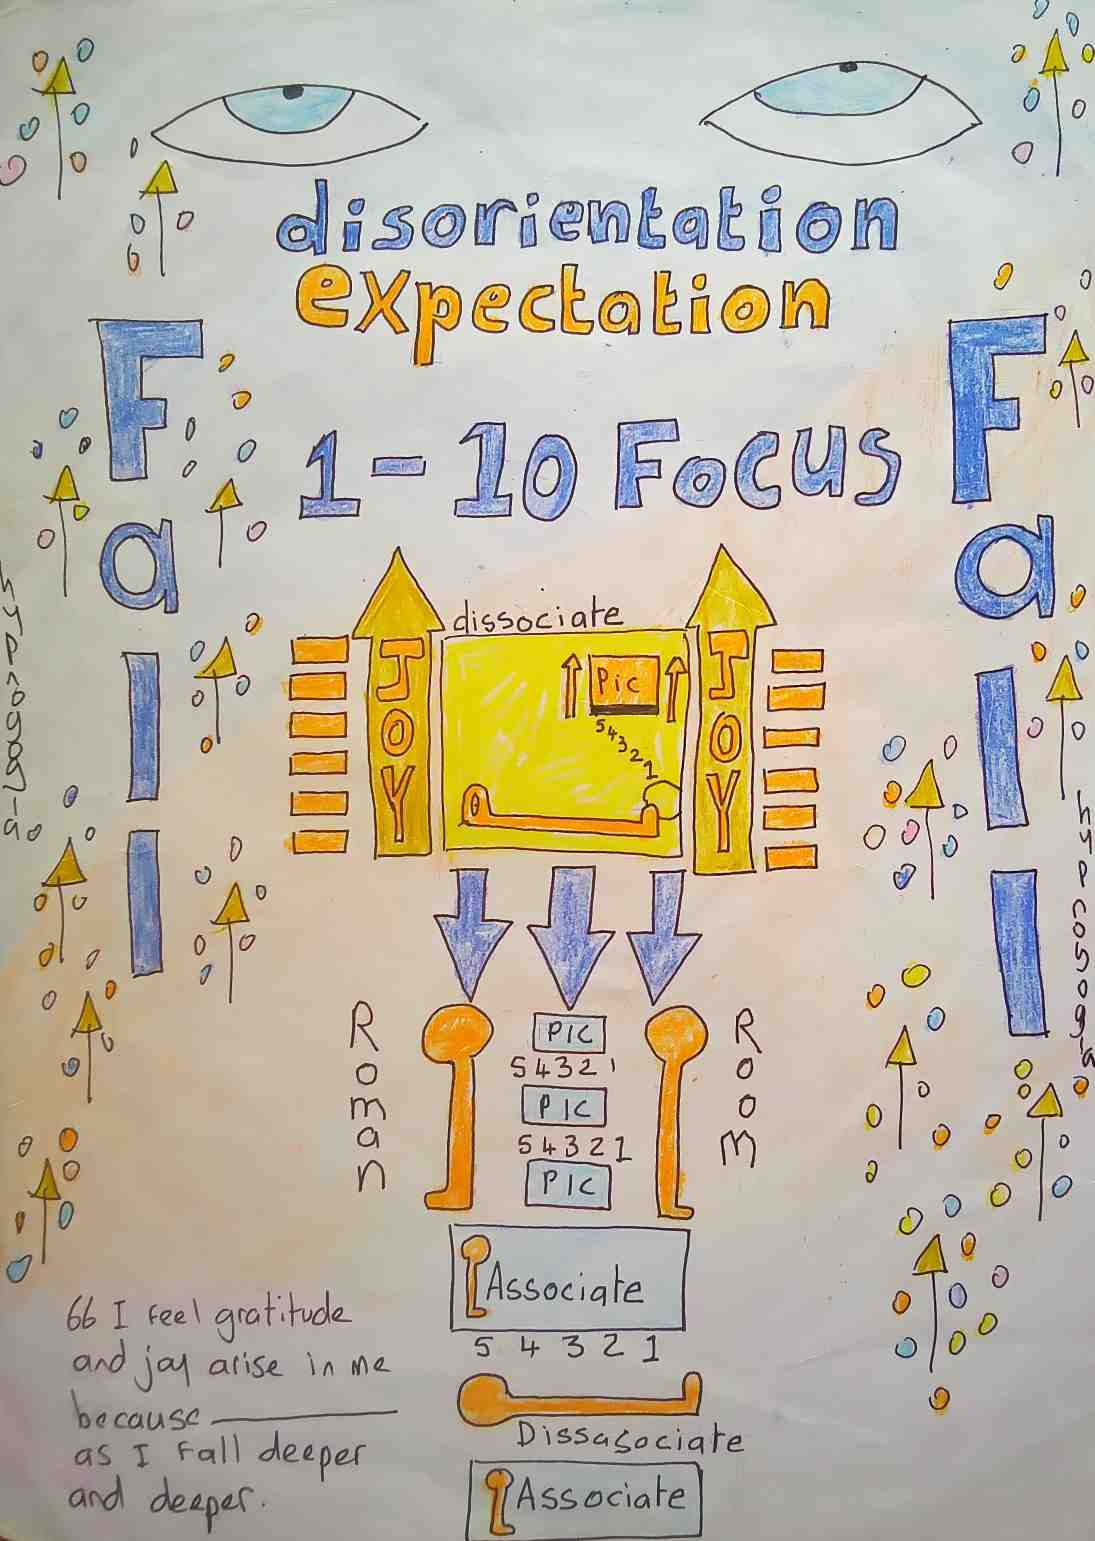 disorientation
expectation
1-10 Focus
Fall
Fall
dissociate
JOY
JOY
Pic
5 4 3 2 1
Roman
Room
PIC
5 4 3 2 1
PIC
5 4 3 2 1
PIC
Associate
5 4 3 2 1
Dissasociate
Associate
66 I feel gratitude
and joy arise in me
because
as I fall deeper
and deeper.